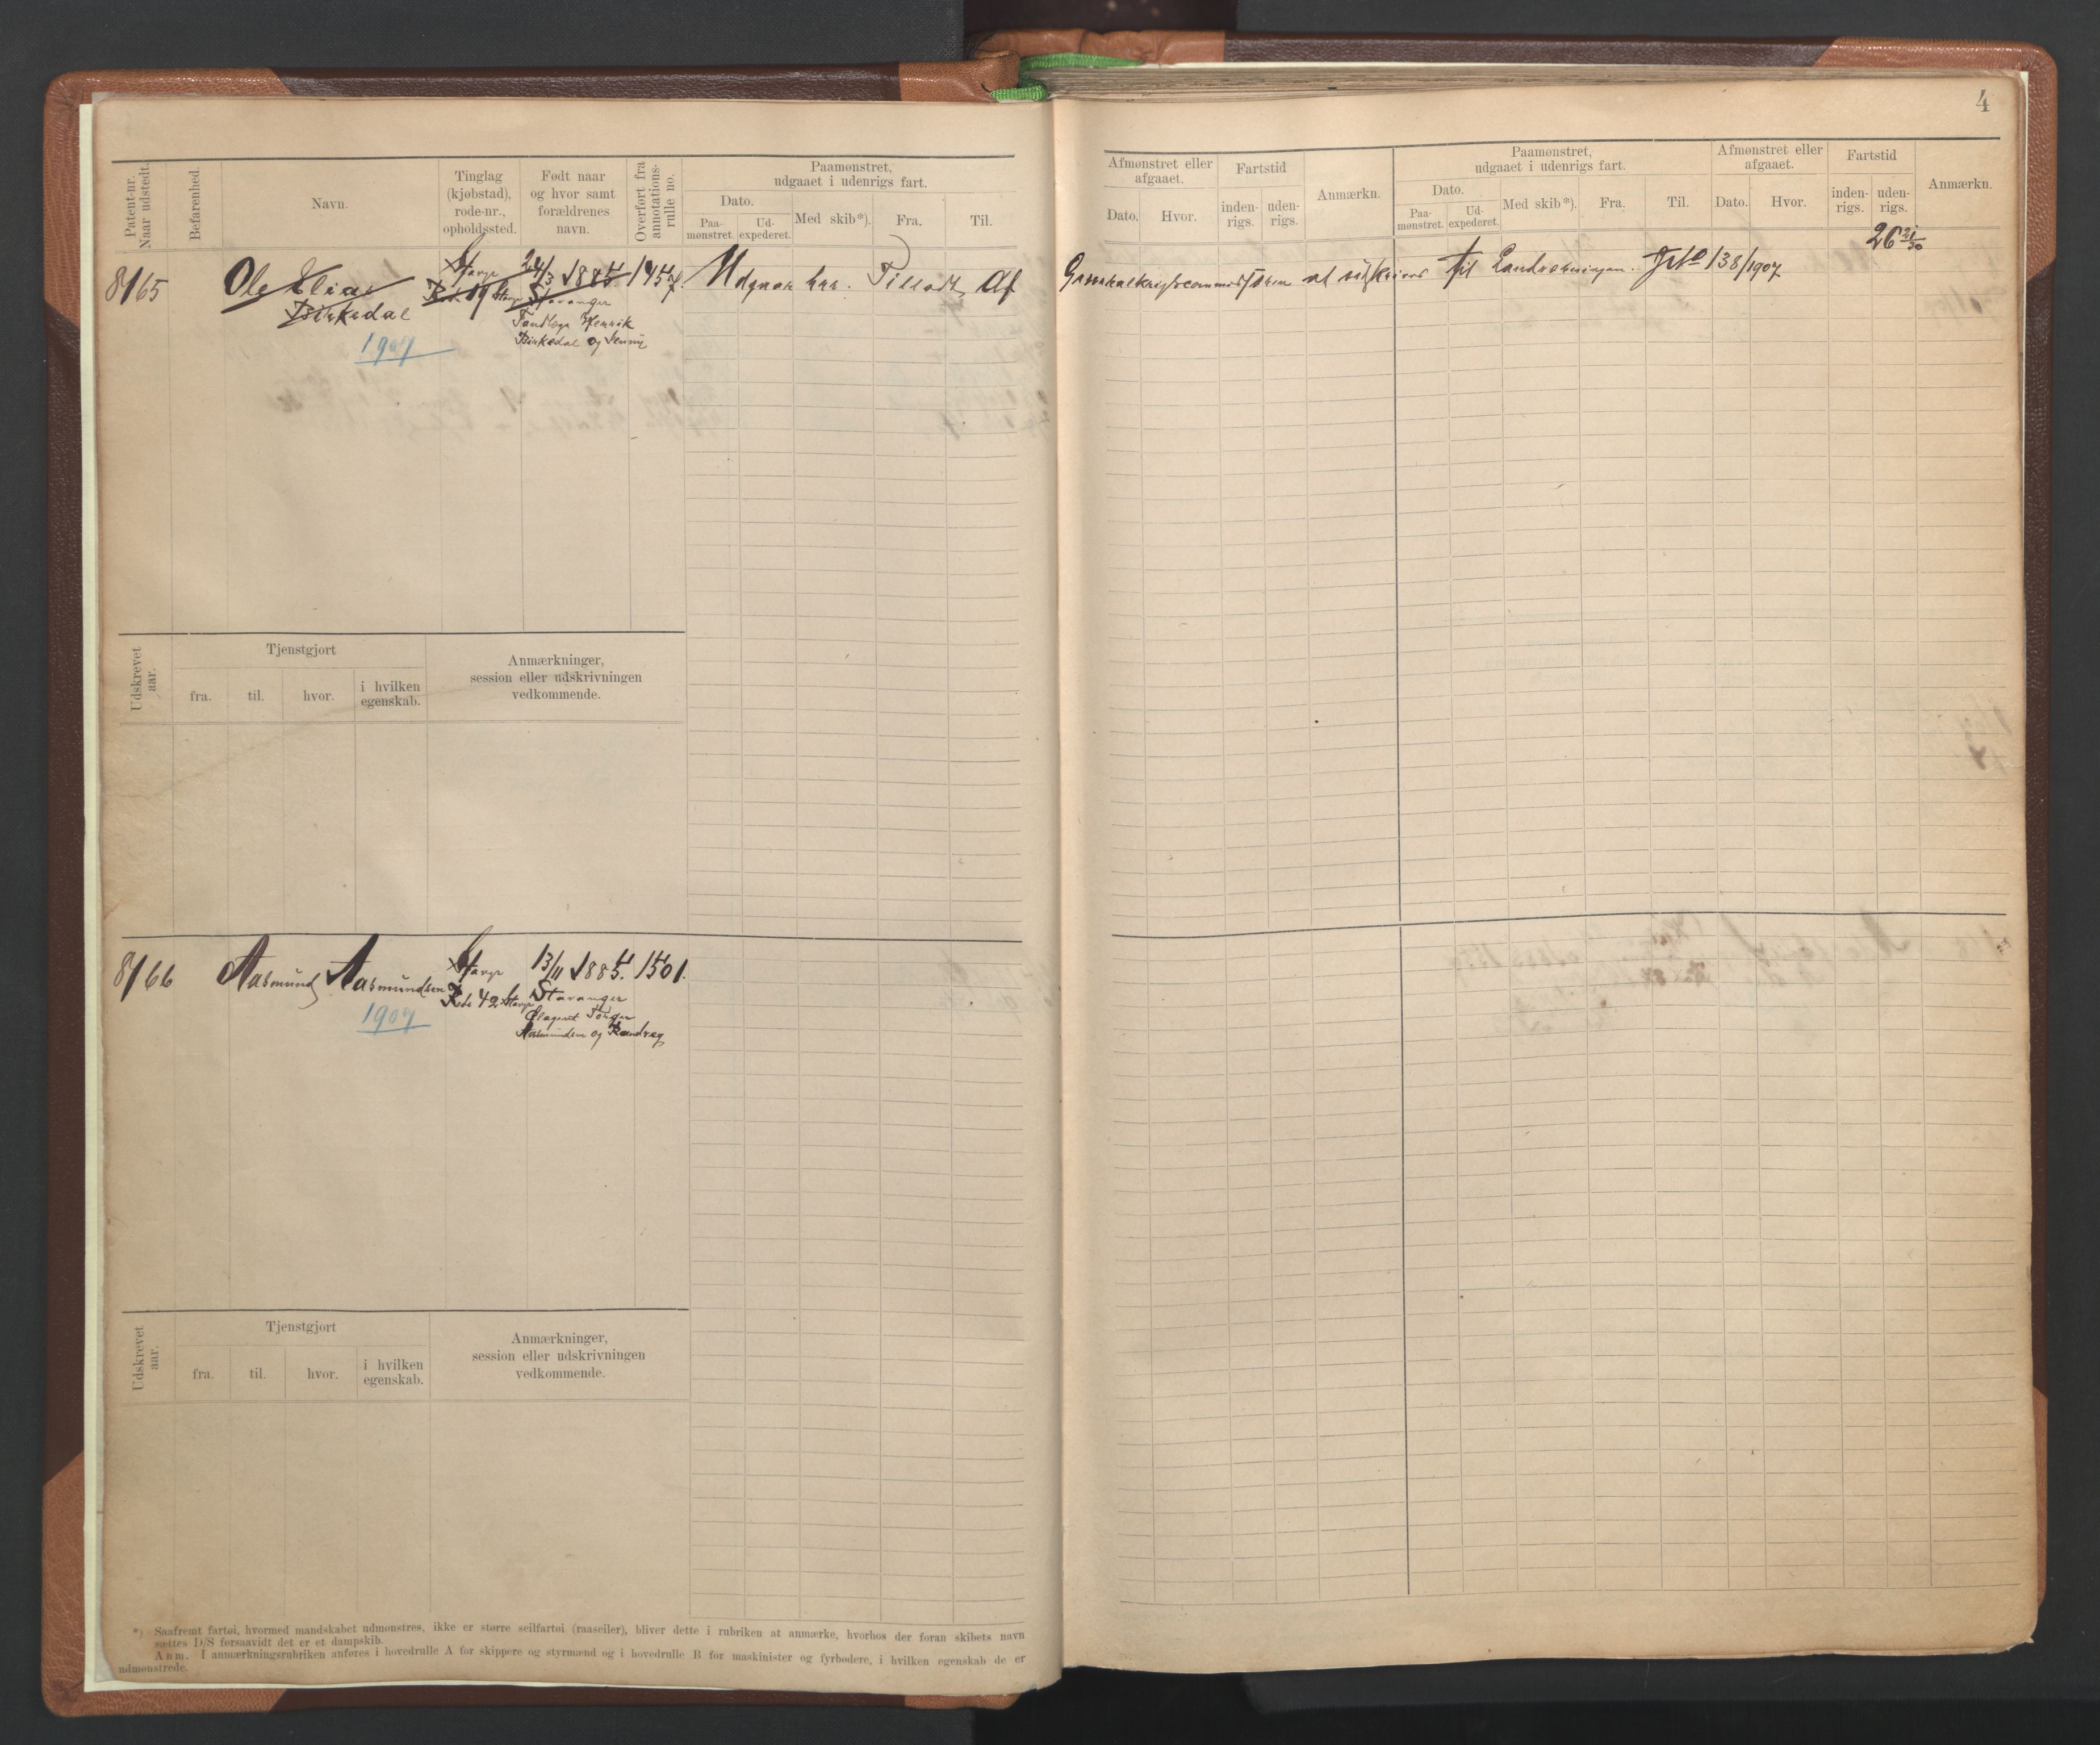 4
Patent-nr. Naar udstedt.
Befarenhed.
Navn.
Tinglag (kjøbstad), rode-nr., opholdssted.
Født naar og hvor samt forældrenes navn.
Overført fra annotations-rulle no.
Paamønstret, udgaaet i udenrigs fart.
Dato.
Paa-mønstret.
Ud-expederet.
Med skib*).
Fra.
Til.
Afmønstret eller afgaaet.
Dato.
Hvor.
Fartstid
inden-rigs.
uden-rigs.
Anmærkn.
Paamønstret, udgaaet i udenrigs fart.
Dato.
Paa-mønstret.
Ud-expederet.
Med skib*).
Fra.
Til.
Afmønstret eller afgaaet.
Dato.
Hvor.
Fartstid
inden-rigs.
uden-rigs.
Anmærkn.
26 21/30
8165
Ole Elias
Birkedal
1907
Stavgr
19 Stavgr
24/3 1885
Stavanger
Tandlæge Henrik
Birkedal og Jenny
Udgaar her. Tilladt af
Generalkrigscommissæren at udskrives til Landværningen. 138/1907
Udskrevet aar.
Tjenstgjort
fra.
til.
hvor.
i hvilken egenskab.
Anmærkninger,
session eller udskrivningen
vedkommende.
8166
Aasmund Aasmundsen
1907
Stavgr
Rode 42 Stavgr
13/11 1885. 1501.
Stavanger
Aasmundsen og
Udskrevet aar.
Tjenstgjort
fra.
til.
hvor.
i hvilken egenskab.
Anmærkninger,
session eller udskrivningen
vedkommende.
*) Saafremt fartøi, hvormed mandskabet udmønstres, ikke er større seilfartøi (raaseiler), bliver dette i rubriken at anmærke, hvorhos der foran skibets navn
sættes D/S forsaavidt det er et dampskib.
Anm. I anmærkningsrubriken anføres i hovedrulle A for skippere og styrmænd og i hovedrulle B for maskinister og fyrbødere, i hvilken egenskab de er
udmønstrede.